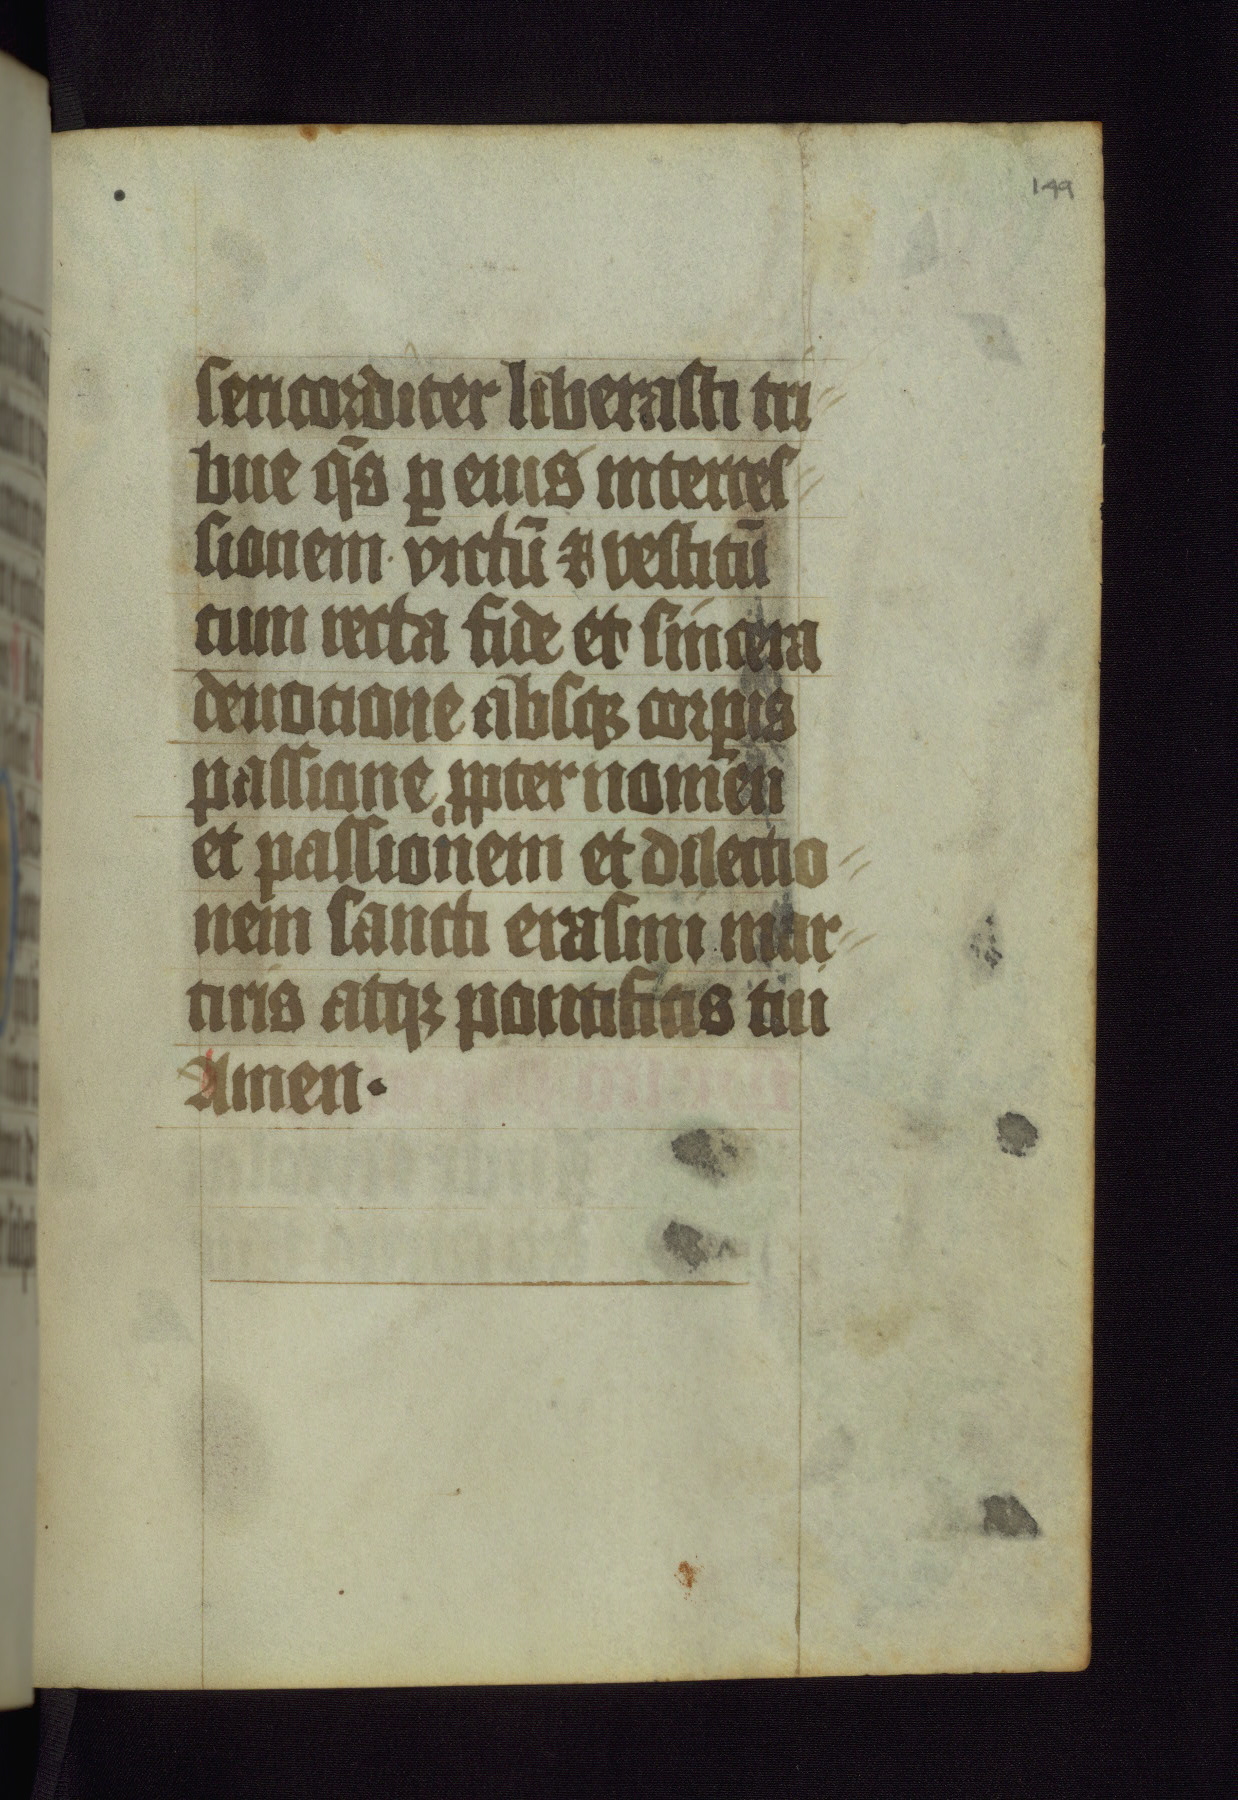 149
sericorditer liberasti tri
bue q̄s ꝑ eius interces
sionem victū ⁊ vestitū
cum recta fide et sincera
deuotione absqꝫ corꝑis
passione ꝓpter nomen
et passionem et dilectio
nem sancti erasmi mar
tiris atqꝫ pontificis tui
Amen.